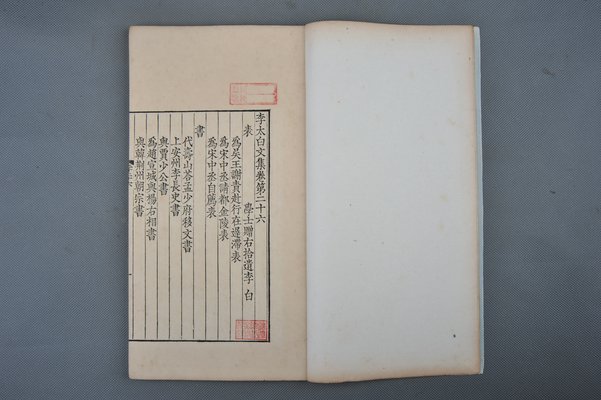 李太白文集卷第二十六
學士贈右拾遺李白
表
為吳王謝責赴行在遲滯表
為宋中丞請都金陵表
為宋中丞自薦表
書
代壽山荅孟少府移文書
上安州李長史書
與賈少公書
為趙宣城與楊右相書
與韓荆州朝宗書